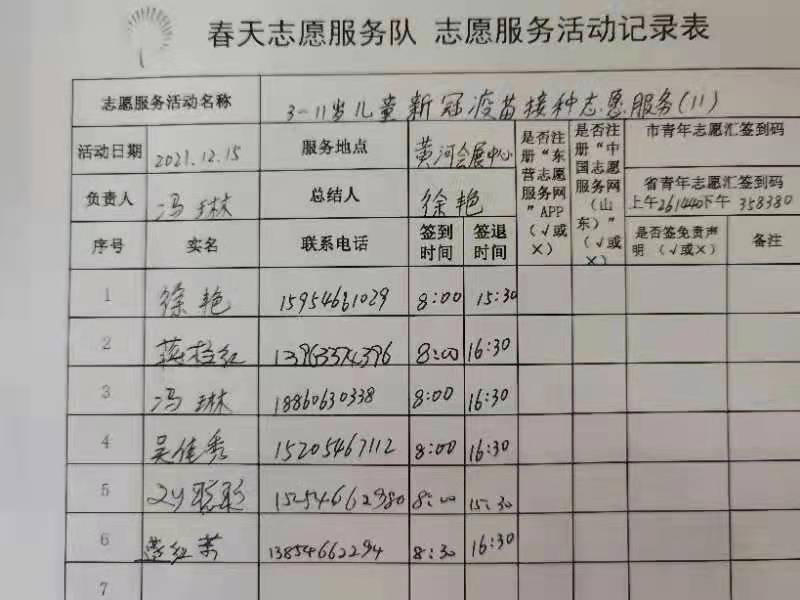 春天志愿服务队 志愿服务活动记录表
志愿服务活动名称 3-11岁儿童新冠疫苗接种志愿服务(11)
活动日期 2021.12.15 服务地点 黄河会展中心 是否注册“东营志愿服务网”APP(√或×) 是否注册“中国志愿服务网(山东)”(√或×) 市青年志愿汇签到码
负责人 冯琳 总结人 徐艳 省青年志愿汇签到码 上午261440下午 358380
序号 实名 联系电话 签到时间 签退时间 是否签免责声明(√或×) 备注
1 徐艳 15954661029 8:00 15:30
2 13963574396 8:00 16:30
3 冯琳 18860630338 8:00 16:30
4 吴佳秀 15205467112 8:00 16:30
5 15254662980 8:00 15:30
6 13854662294 8:30 16:30
7